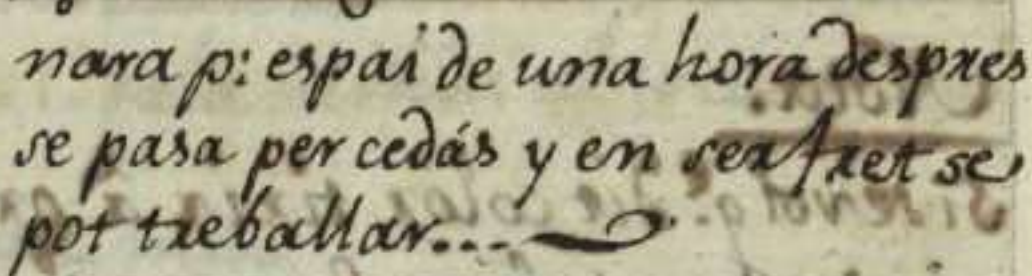 nara p: espai de una hora despres
se pasa per cedás y en ser fret se
pot treballar....